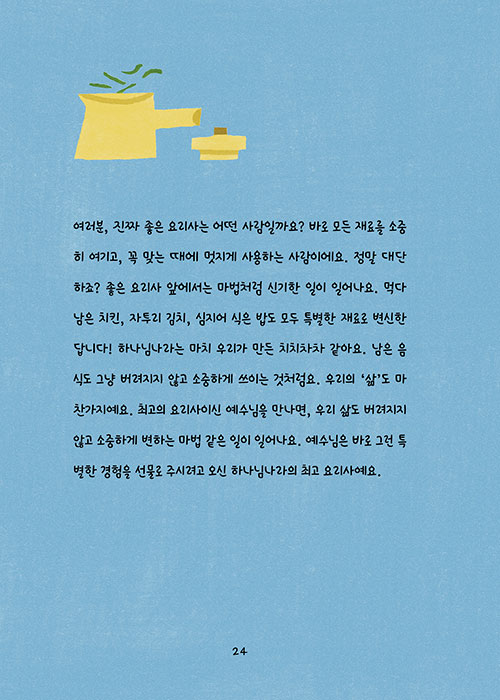 여러분, 진짜 좋은 요리사는 어떤 사람일까요? 바로 모든 재료를 소중
히 여기고, 꼭 맞는 때에 멋지게 사용하는 사람이에요. 정말 대단
하죠? 좋은 요리사 앞에서는 마법처럼 신기한 일이 일어나요. 먹다
남은 치킨, 자투리 김치, 심지어 식은 밥도 모두 특별한 재료로 변신한
답니다! 하나님나라는 마치 우리가 만든 치치차차 같아요. 남은 음
식도 그냥 버려지지 않고 소중하게 쓰이는 것처럼요. 우리의 ‘삶’도 마
찬가지예요. 최고의 요리사이신 예수님을 만나면, 우리 삶도 버려지지
않고 소중하게 변하는 마법 같은 일이 일어나요. 예수님은 바로 그런 특
별한 경험을 선물로 주시려고 오신 하나님나라의 최고 요리사예요.
24